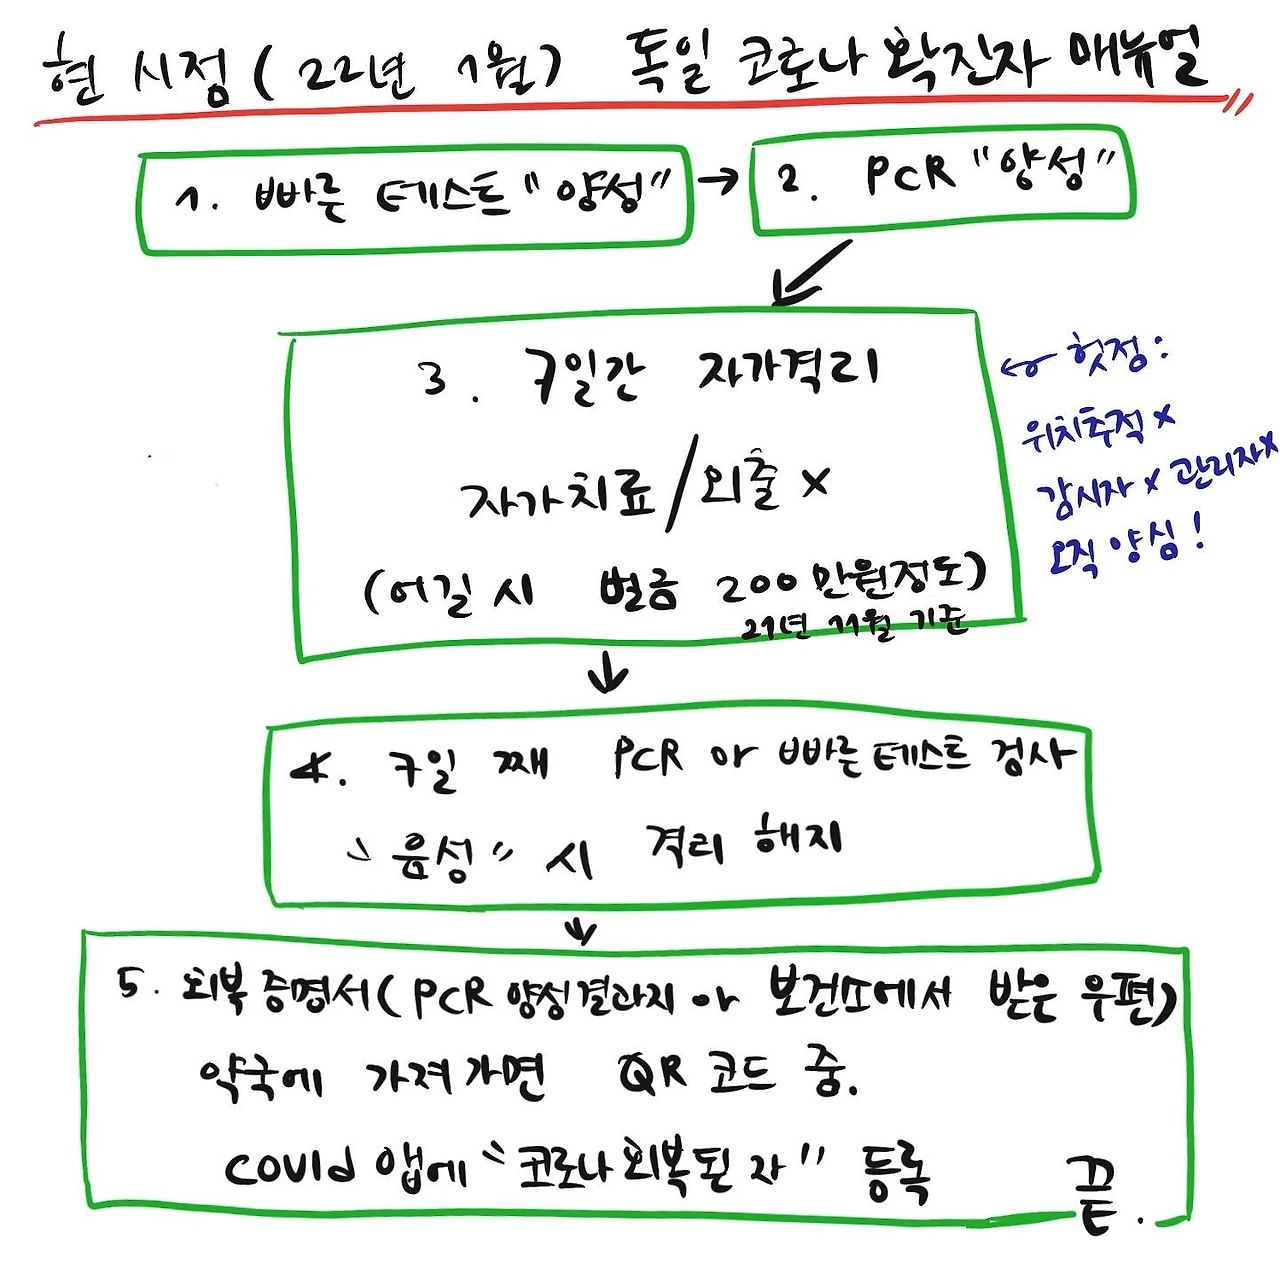 현 시점 ( 22년 1월 ) 독일 코로나 확진자 매뉴얼
1. 빠른 테스트 "양성" → 2. PCR "양성"
3. 7일간 자가격리
자가치료 / 외출 x
(어길 시 벌금 200만원정도)
21년 11월 기준
← 헛점:
위치추적 x
감시자 x 관리자 x
오직 양심!
4. 7일 째 PCR or 빠른테스트 검사
"음성" 시 격리 해지
5. 회복 증명서 (PCR 양성결과지 or 보건소에서 받은 우편)
약국에 가져가면 QR 코드 줌.
COVID 앱에 "코로나 회복된 자" 등록
끝.